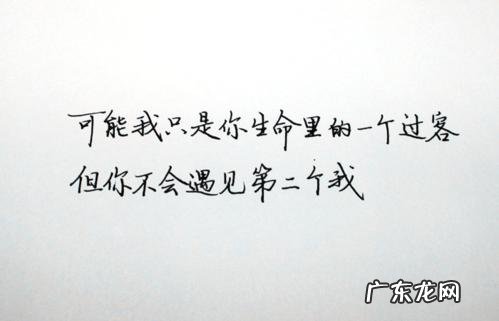 可能我只是你生命里的一个过客
但你不会遇见第二个我
广东龙网